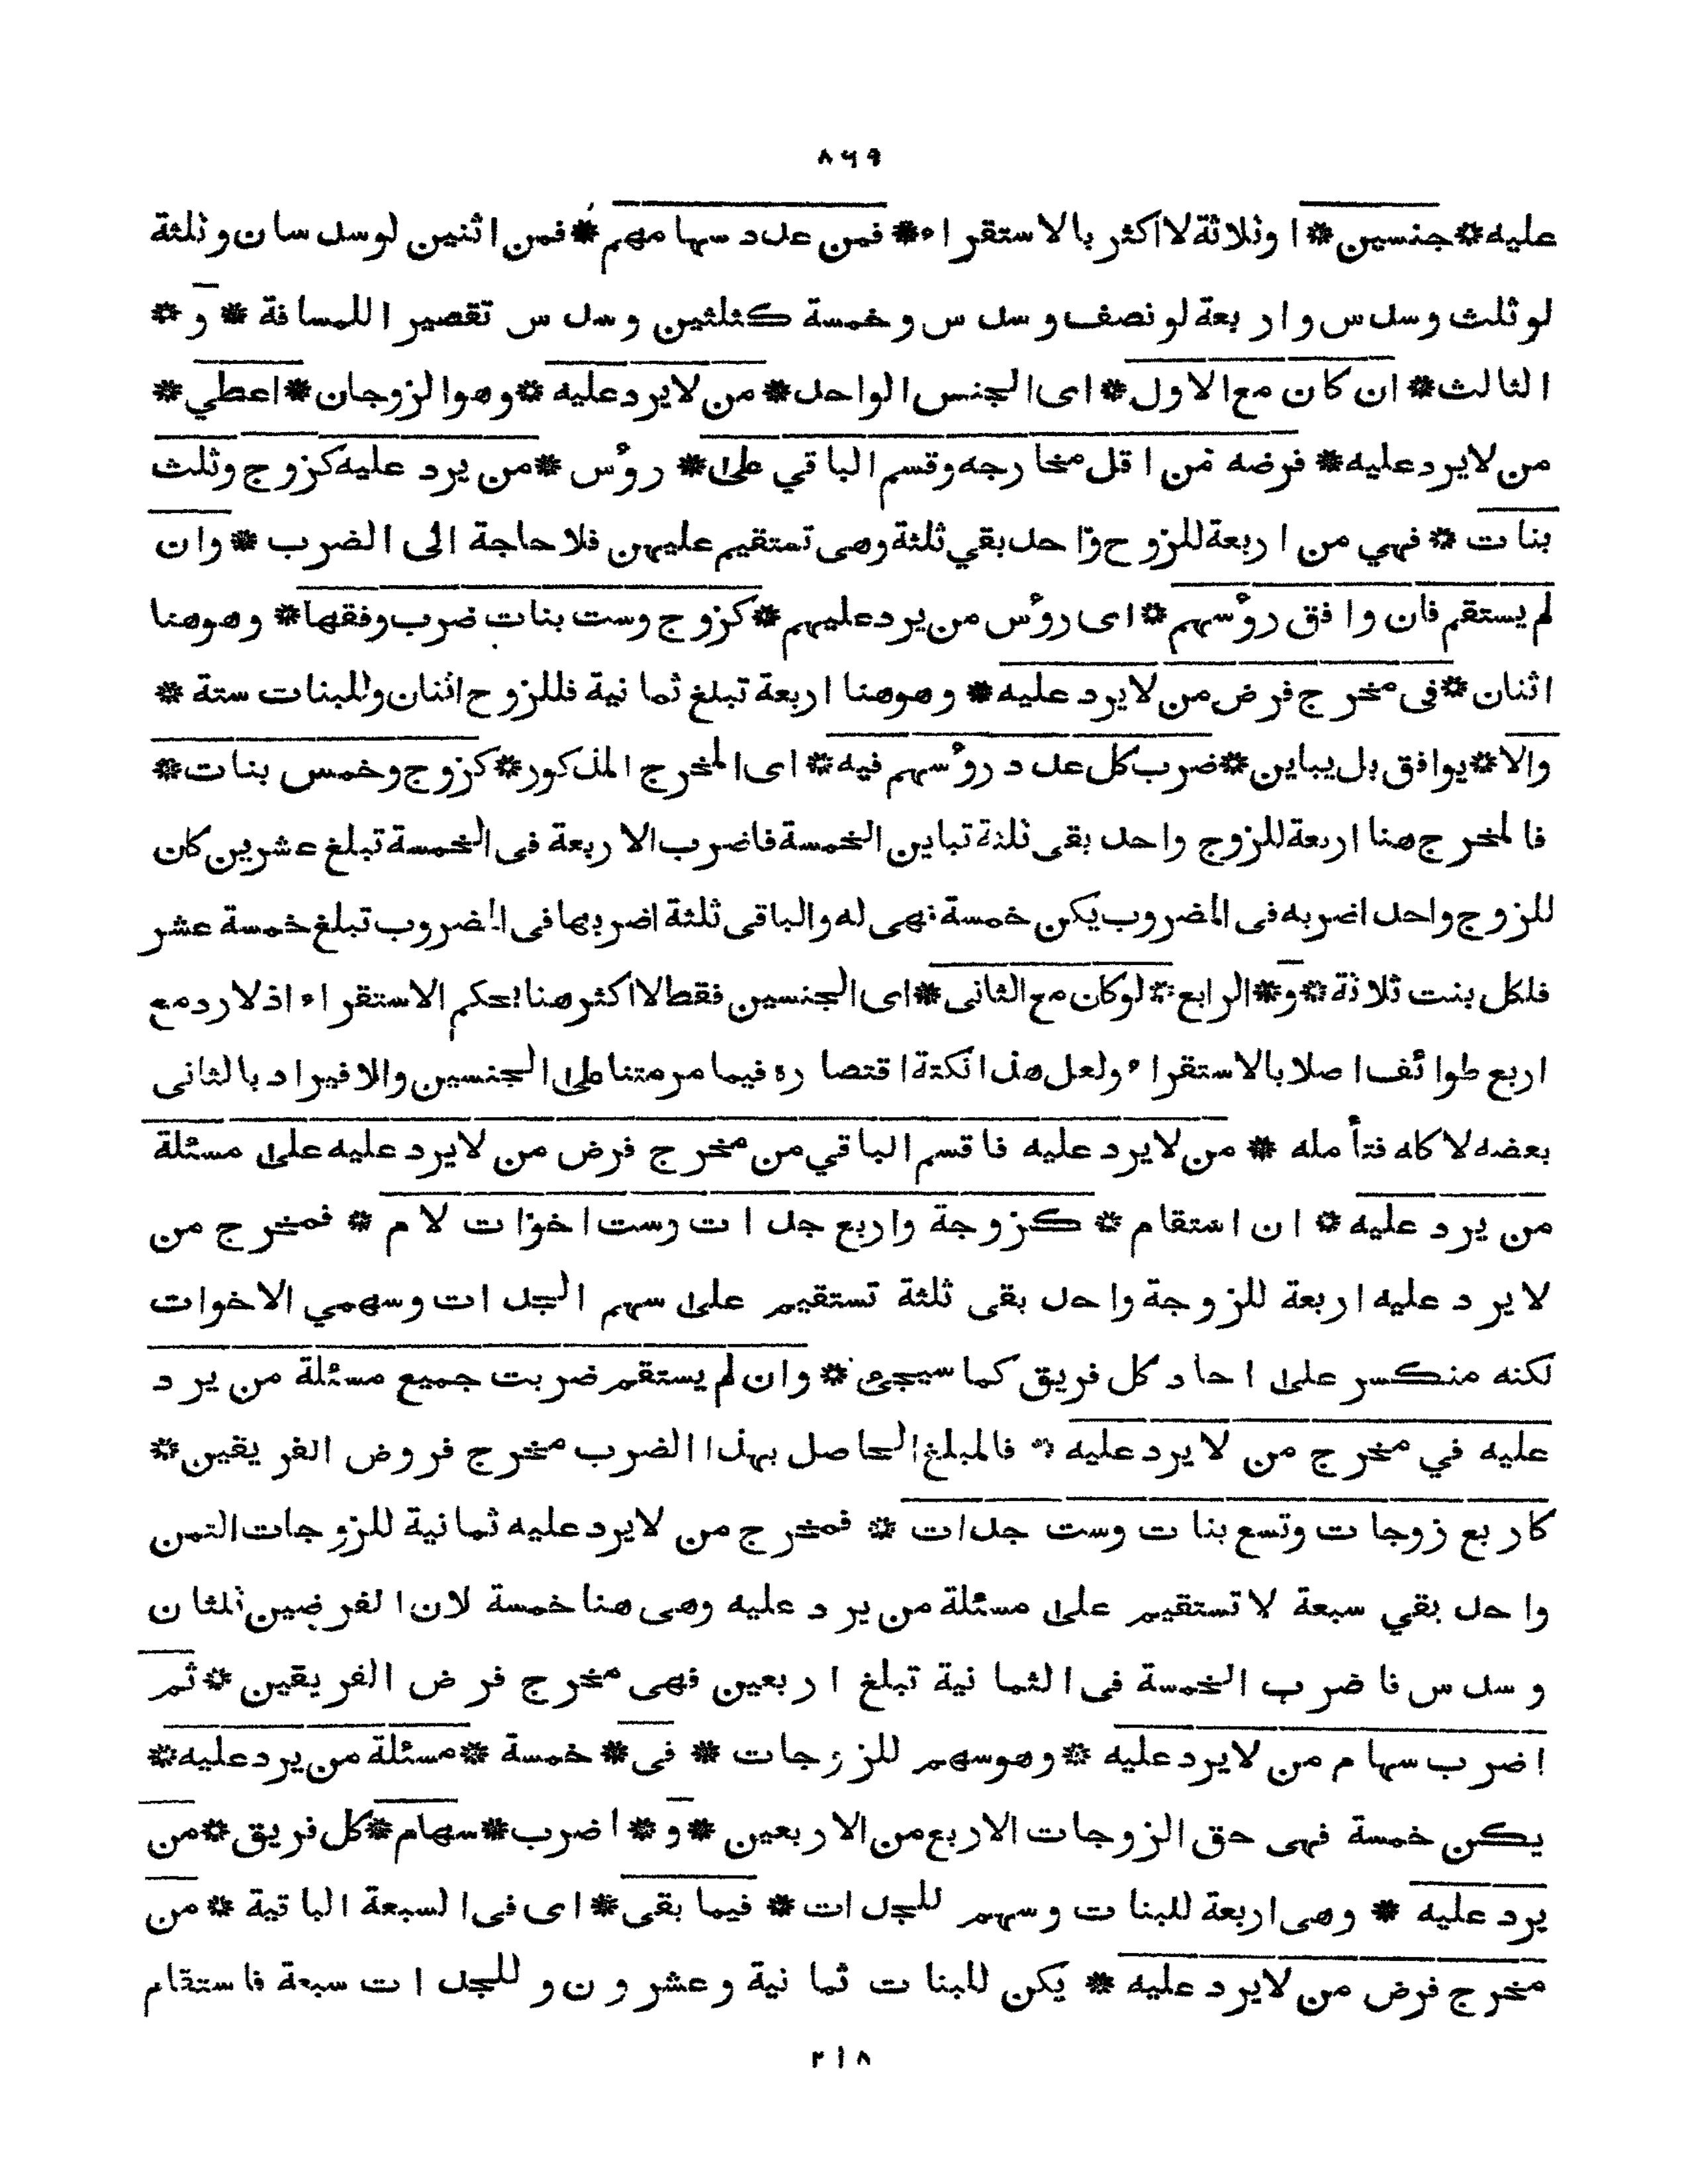 ٨٦٩
عليه * جنسين * او ثلاثة لا اكثر بالاستقراء * فمن عدد سهامهم * فمن اثنين لو سدسان و ثلثة
لو ثلث و سدس و اربعة لو نصف و سدس و خمسة كثلثين و سدس تقصيرا للمسافة * و *
الثالث * ان كان مع الاول * اى الجنس الواحد * من لا يرد عليه * و هو الزوجان * اعطي *
من لا يرد عليه * فرضه من اقل مخارجه و قسم الباقي على * رؤس * من يرد عليه كزوج و ثلث
بنات * فهي من اربعة للزوج واحد بقي ثلثة و هى تستقيم عليهن فلا حاجة الى الضرب * و ان
لم يستقم فان وافق رؤسهم * اى رؤس من يرد عليهم * كزوج و ست بنات ضرب وفقها * و هو هنا
اثنان * فى مخرج فرض من لا يرد عليه * و هو هنا اربعة تبلغ ثمانية فللزوج اثنان و للبنات ستة *
و الا * يوافق بل يباين * ضرب كل عدد رؤسهم فيه * اى المخرج المذكور * كزوج و خمس بنات *
فالمخرج هنا اربعة للزوج واحد بقى ثلثة تباين الخمسة فاضرب الاربعة فى الخمسة تبلغ عشرين كان
للزوج واحد اضربه فى المضروب يكن خمسة فهى له و الباقى ثلثة اضربها فى المضروب تبلغ خمسة عشر
فلكل بنت ثلاثة * و * الرابع * لو كان مع الثانى * اى الجنسين فقط لا اكثر هنا بحكم الاستقراء اذ لا رد مع
اربع طوائف اصلا بالاستقراء و لعل هذا نكتة اقتصاره فيما مر متنا على الجنسين و الا فيراد بالثانى
بعضه لا كله فتأمله * من لا يرد عليه فاقسم الباقي من مخرج فرض من لا يرد عليه على مسئلة
من يرد عليه * ان استقام * كزوجة و اربع جدات و ست اخوات لام * فمخرج من
لا يرد عليه اربعة للزوجة واحد بقى ثلثة تستقيم على سهم الجدات و سهمي الاخوات
لكنه منكسر على احاد كل فريق كما سيجئ * و ان لم يستقم ضربت جميع مسئلة من يرد
عليه في مخرج من لا يرد عليه * فالمبلغ الحاصل بهذا الضرب مخرج فروض الفريقين *
كاربع زوجات و تسع بنات و ست جدات * فمخرج من لا يرد عليه ثمانية للزوجات الثمن
واحد بقي سبعة لا تستقيم على مسئلة من يرد عليه و هى هنا خمسة لان الفرضين ثلثان
و سدس فاضرب الخمسة فى الثمانية تبلغ اربعين فهى مخرج فرض الفريقين * ثم
اضرب سهام من لا يرد عليه * و هو سهم للزوجات * فى * خمسة * مسئلة من يرد عليه *
يكن خمسة فهى حق الزوجات الاربع من الاربعين * و * اضرب * سهام * كل فريق * من
يرد عليه * و هى اربعة للبنات و سهم للجدات * فيما بقى * اى فى السبعة الباقية * من
مخرج فرض من لا يرد عليه * يكن للبنات ثمانية و عشرون و للجدات سبعة فاستقام
٢١٨